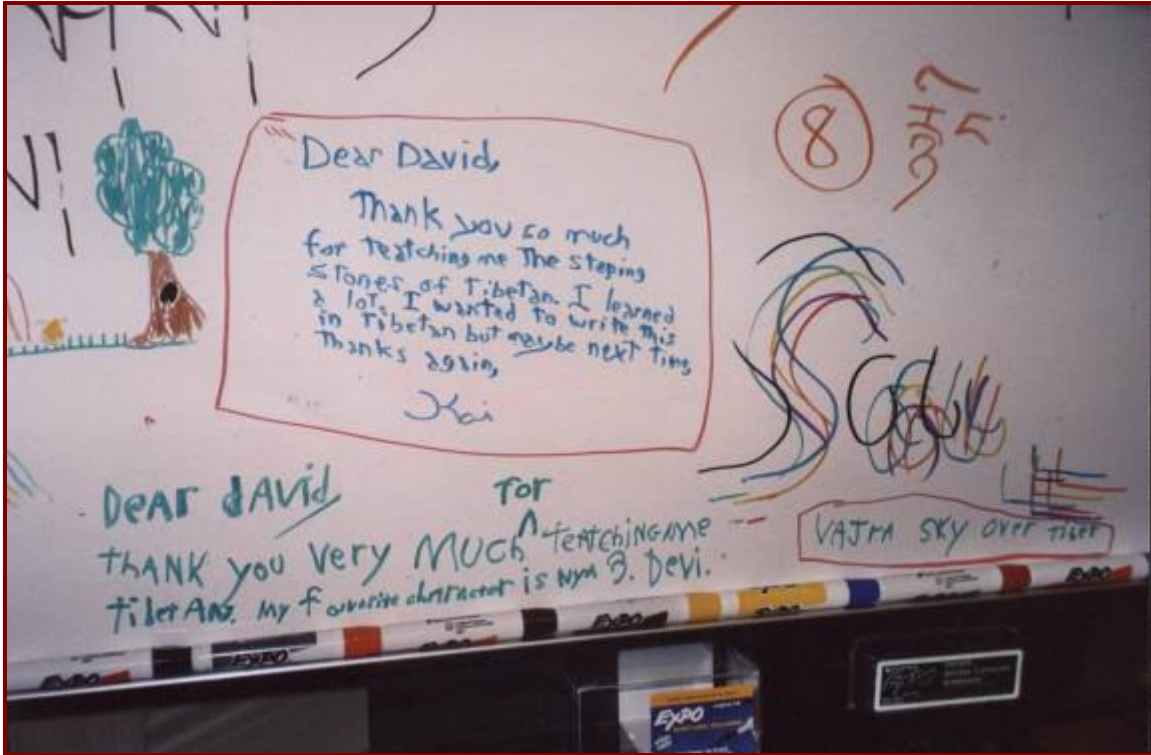 8
Dear David,
Thank you so much
for teatching me The steping
stones of Tibetan. I learned
a lot. I wanted to write this
in Tibetan but maybe next time,
Thanks again,
Kai
Dear dAvid
for
THANK you Very MUCH ^ teatching me
TibetAn. my favorite character is Nya 3. Devi.
VAJrA SKY over Tibet
EXPO
EXPO
EXPO
EXPO
EXPO
EXPO
EXPO